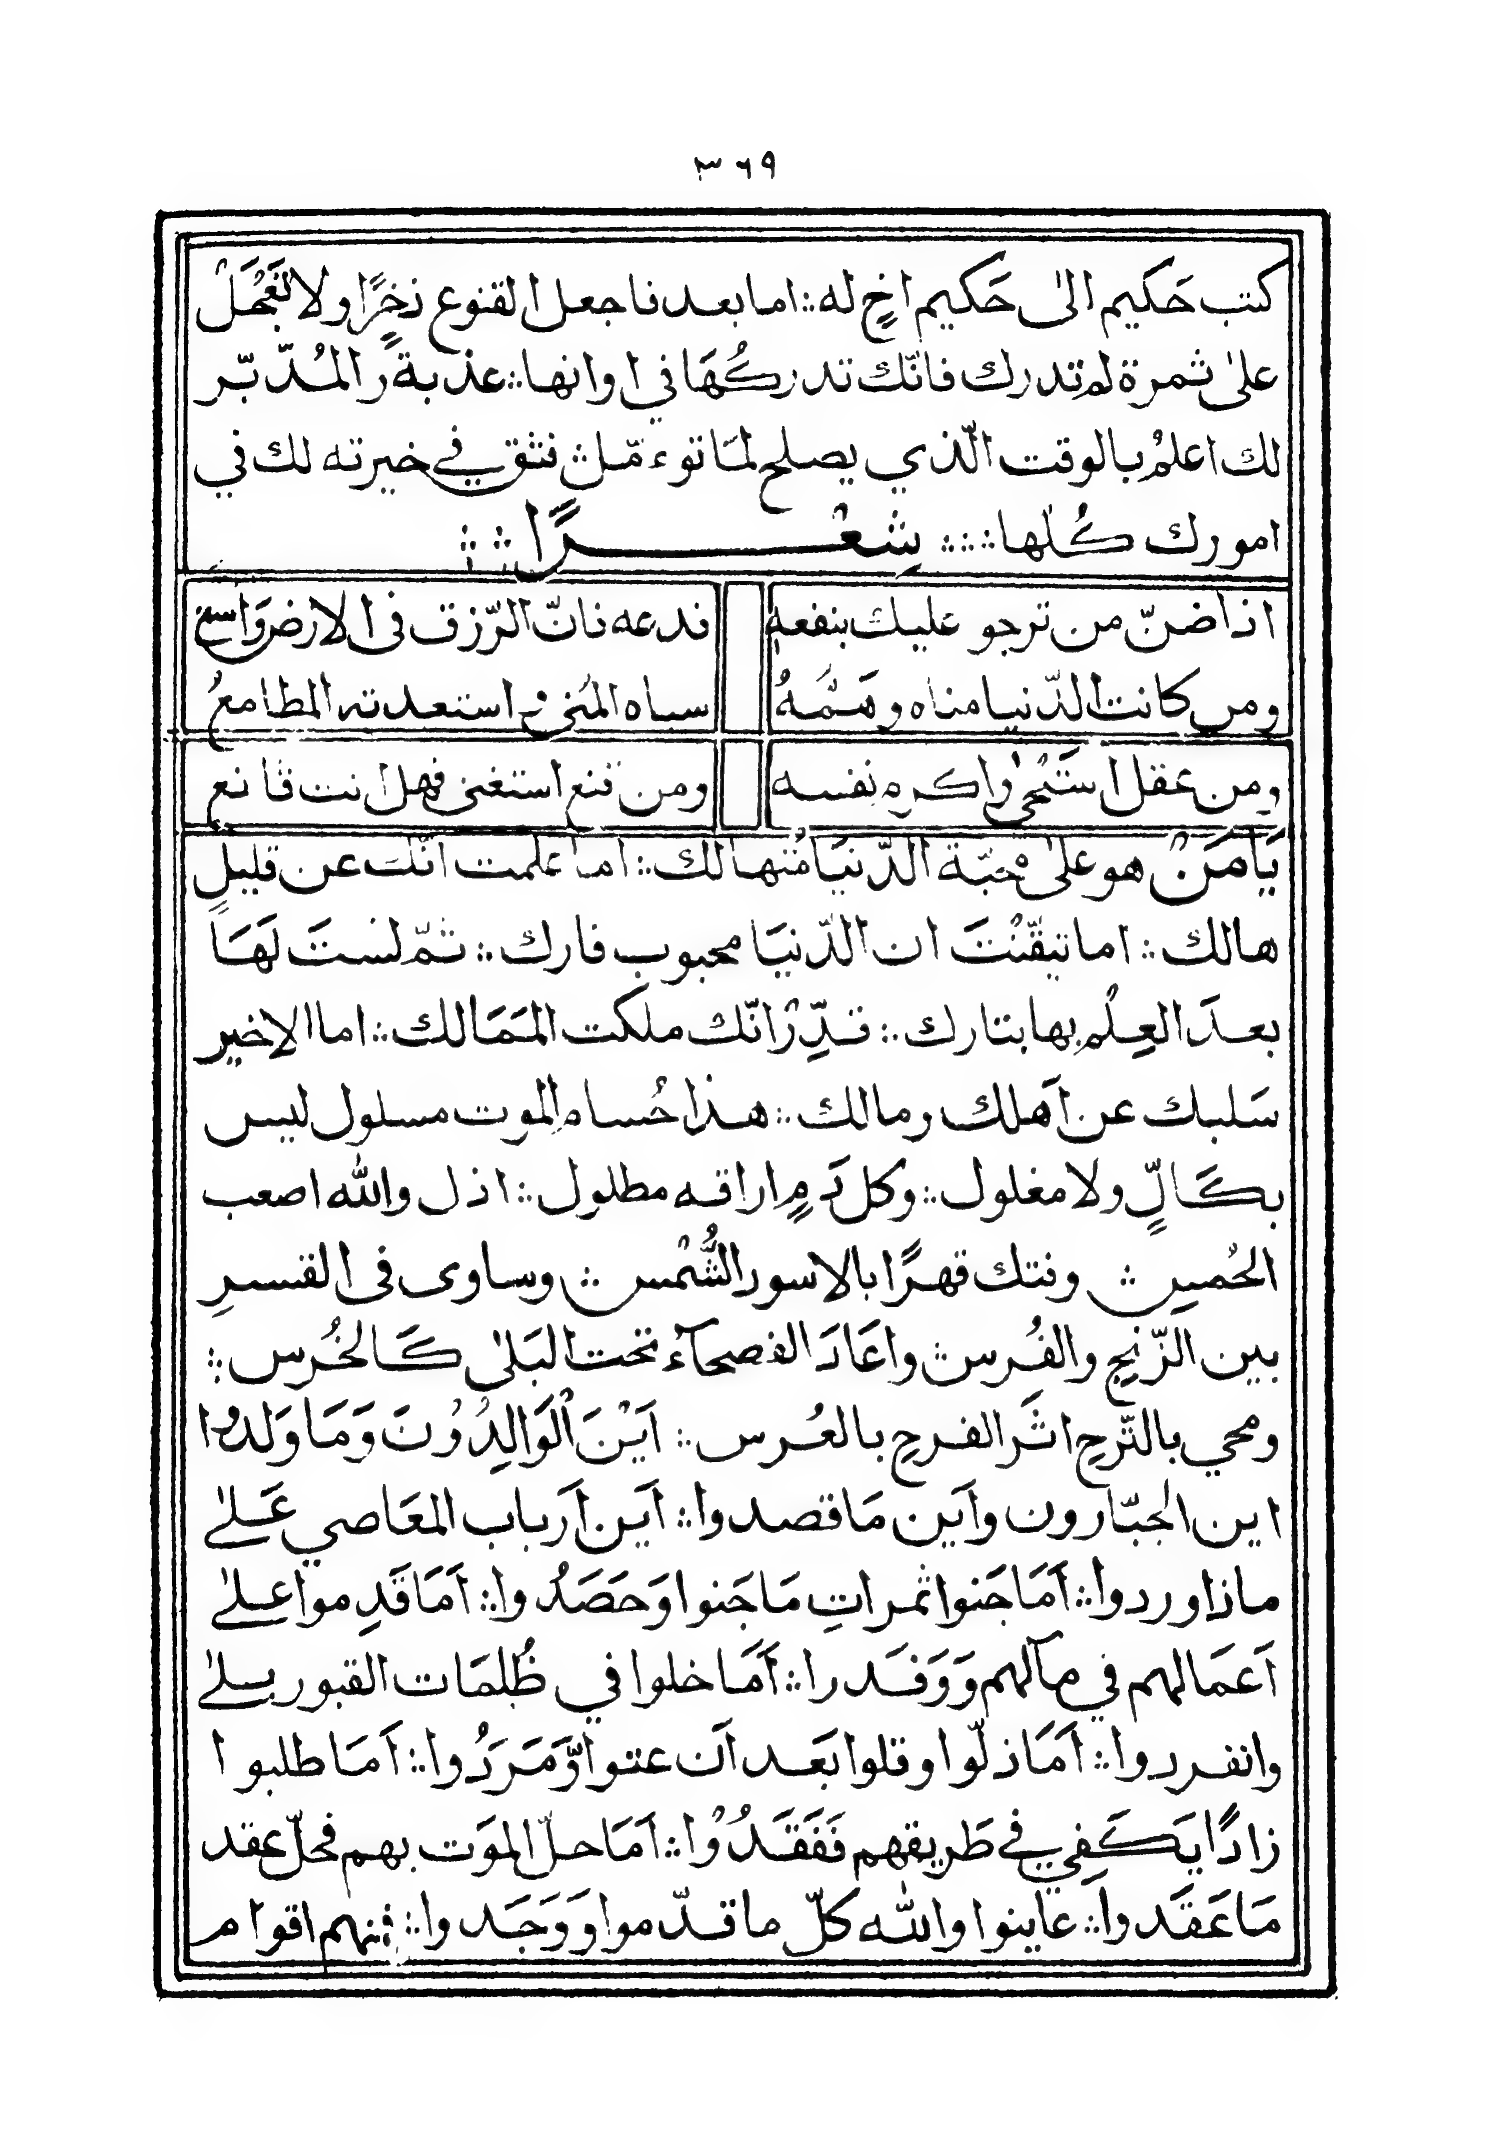 ٣٦٩
كتب حَكيم الىٰ حَكيم اخٍ له ؛ اما بعد فاجعل القنوع ذخرًا ولا تَعْجَلْ
علىٰ ثمرة لم تدرك فانّك تدركُهَا في اوانها ؛ عذبةً والمُدّبّر
لك اعلمُ بالوقت الّذي يصلح لمَا توءمّل ؛ فثق في خيرته لك في
امورك كُلّها ؛ شِعْرًا
اذا ضنّ من ترجو عليك بنفعهِ
فدعه فانّ الرّزق فى الارض وَاسع
ومن كانت الدّنيا مناه وهَمُّهُ
سباه المُنى واستعبدته المطامعُ
ومن عقل استَحْيٰ واكرم نفسه
ومن قنع استغنى فهل انت قانع
يَامَنْ هو علىٰ مْحبّة الدّنيَا مُتهالك ؛ اما علمت انّك عن قليلٍ
هالك ؛ اما تيقّنْتَ ان الدّنيَا محبوب فارك ؛ ثمّ لستَ لَهَا
بعدَ العِلْمِ بها بتارك ؛ قدِّرْ انّكْ ملكت المَمَالك ؛ اما الاخير
سَلبك عن اَهلك ومالك ؛ هذا حُسام الموت مسلول ليس
بكَالٍّ ولا مغلول ؛ وكل دَمٍ اراقه مطلول ؛ اذل والله اصعب
الحُمسِ ؛ وفتك قهرًا بالاسود الشُّمْس ؛ وساوى فى القسرِ
بين الزّنجِ والفُرس ؛ واعَادَ الفصحآءَ تحت البَلىٰ كَالخُرس ؛
ومحي بالتّرحِ اثَر الفرحِ بالعُرس ؛ اَيْنَ الْوَالِدُوْنَ وَمَا وَلدُوا
اين الجبّارون واَين مَا قصدوا ؛ اَين اَرباب المعَاصي عَلىٰ
ماذا وردوا ؛ اَمَا جَنوا ثمراتِ مَا جَنوا وَحَصَدُوا ؛ اَمَا قَدِموا علىٰ
اَعمَالهم في مآلهم وَوَفَدوا ؛ اَمَا خلوا في ظُلمَات القبور بلىٰ
وانفردوا ؛ اَمَا ذلّوا وقلوا بَعد اَن عتوا وَّمَرَدُوا ؛ اَمَا طلبوا
زادًا يَكَفِي في طَريقهم فَفَقَدُوْا ؛ اَمَا حلّ الموَت بهم فحلّ عقد
مَا عَقَدوا ؛ عاينوا والله كلّ ما قدّموا وَوَجَدوا ؛ فمنهم اقوام